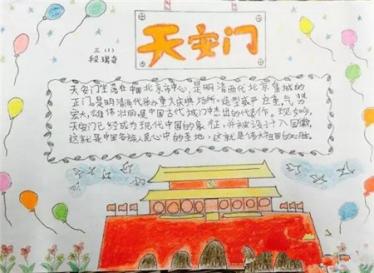 天安门
三(1)
段瑞奇
天安门坐落在中国北京市中心,是明清两代北京皇城的
正门,是明清两代举办重大庆典场所,造型威严庄重,气势
宏大,雄伟壮丽,是中国古代城门中杰出的代表作。现如今,
天安门已经成为现代中国的象征,并被设计入国徽,
这就是中国各族人民心中的圣地,这就是伟大祖国的心脏。